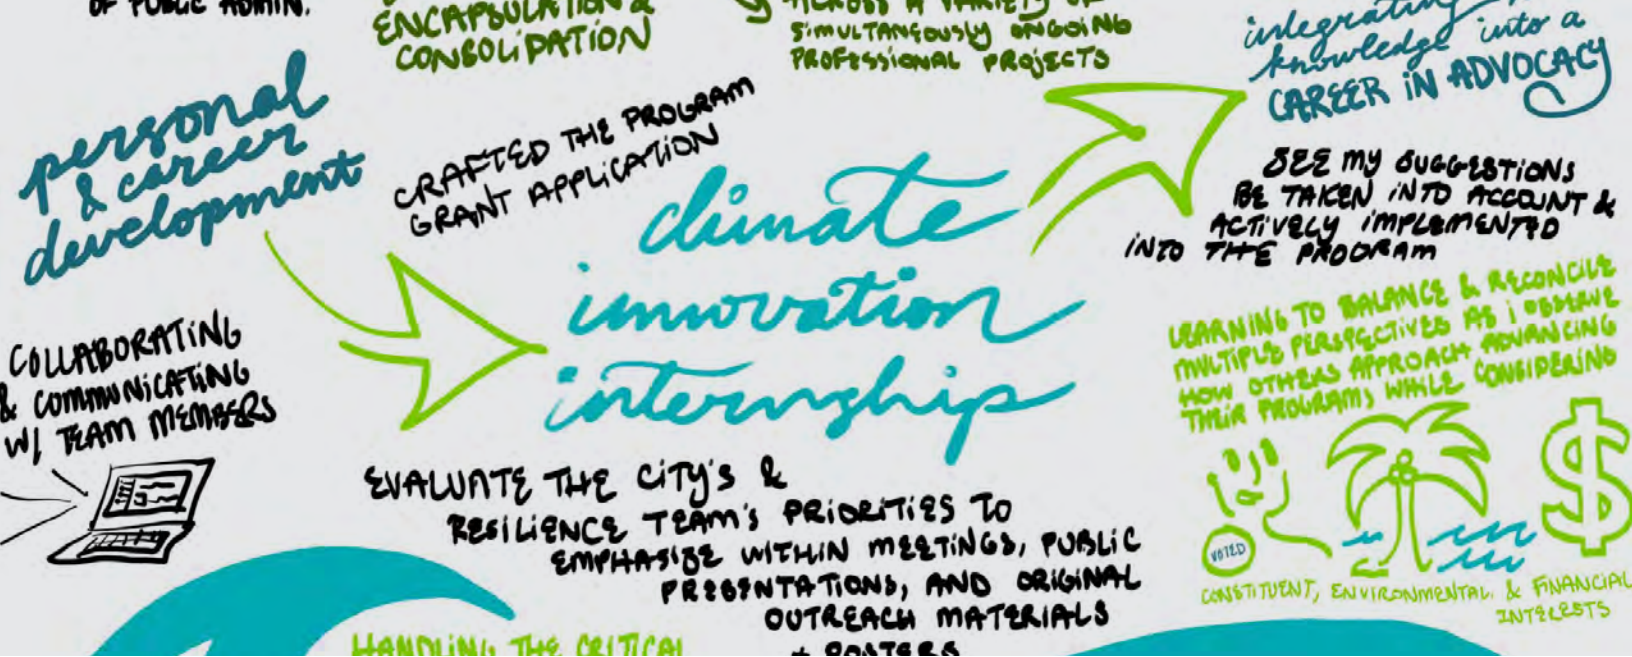 OF PUBLIC ADMIN.
ENCAPSULATION &
CONSOLIDATION
ACROSS A VARIETY OF
SIMULTANEOUSLY ONGOING
PROFESSIONAL PROJECTS
integrating
knowledge into a
CAREER IN ADVOCACY
personal
& career
development
CRAFTED THE PROGRAM
GRANT APPLICATION
climate
innovation
internship
SEE MY SUGGESTIONS
BE TAKEN INTO ACCOUNT &
ACTIVELY IMPLEMENTED
INTO THE PROGRAM
COLLABORATING
& COMMUNICATING
W/ TEAM MEMBERS
LEARNING TO BALANCE & RECONCILE
MULTIPLE PERSPECTIVES AS I OBSERVE
HOW OTHERS APPROACH ADVANCING
THEIR PROGRAMS WHILE CONSIDERING
VOTED
CONSTITUENT, ENVIRONMENTAL, & FINANCIAL
INTERESTS
EVALUATE THE CITY'S &
RESILIENCE TEAM'S PRIORITIES TO
EMPHASIZE WITHIN MEETINGS, PUBLIC
PRESENTATIONS, AND ORIGINAL
OUTREACH MATERIALS
+ POSTERS
HANDLING THE CRITICAL